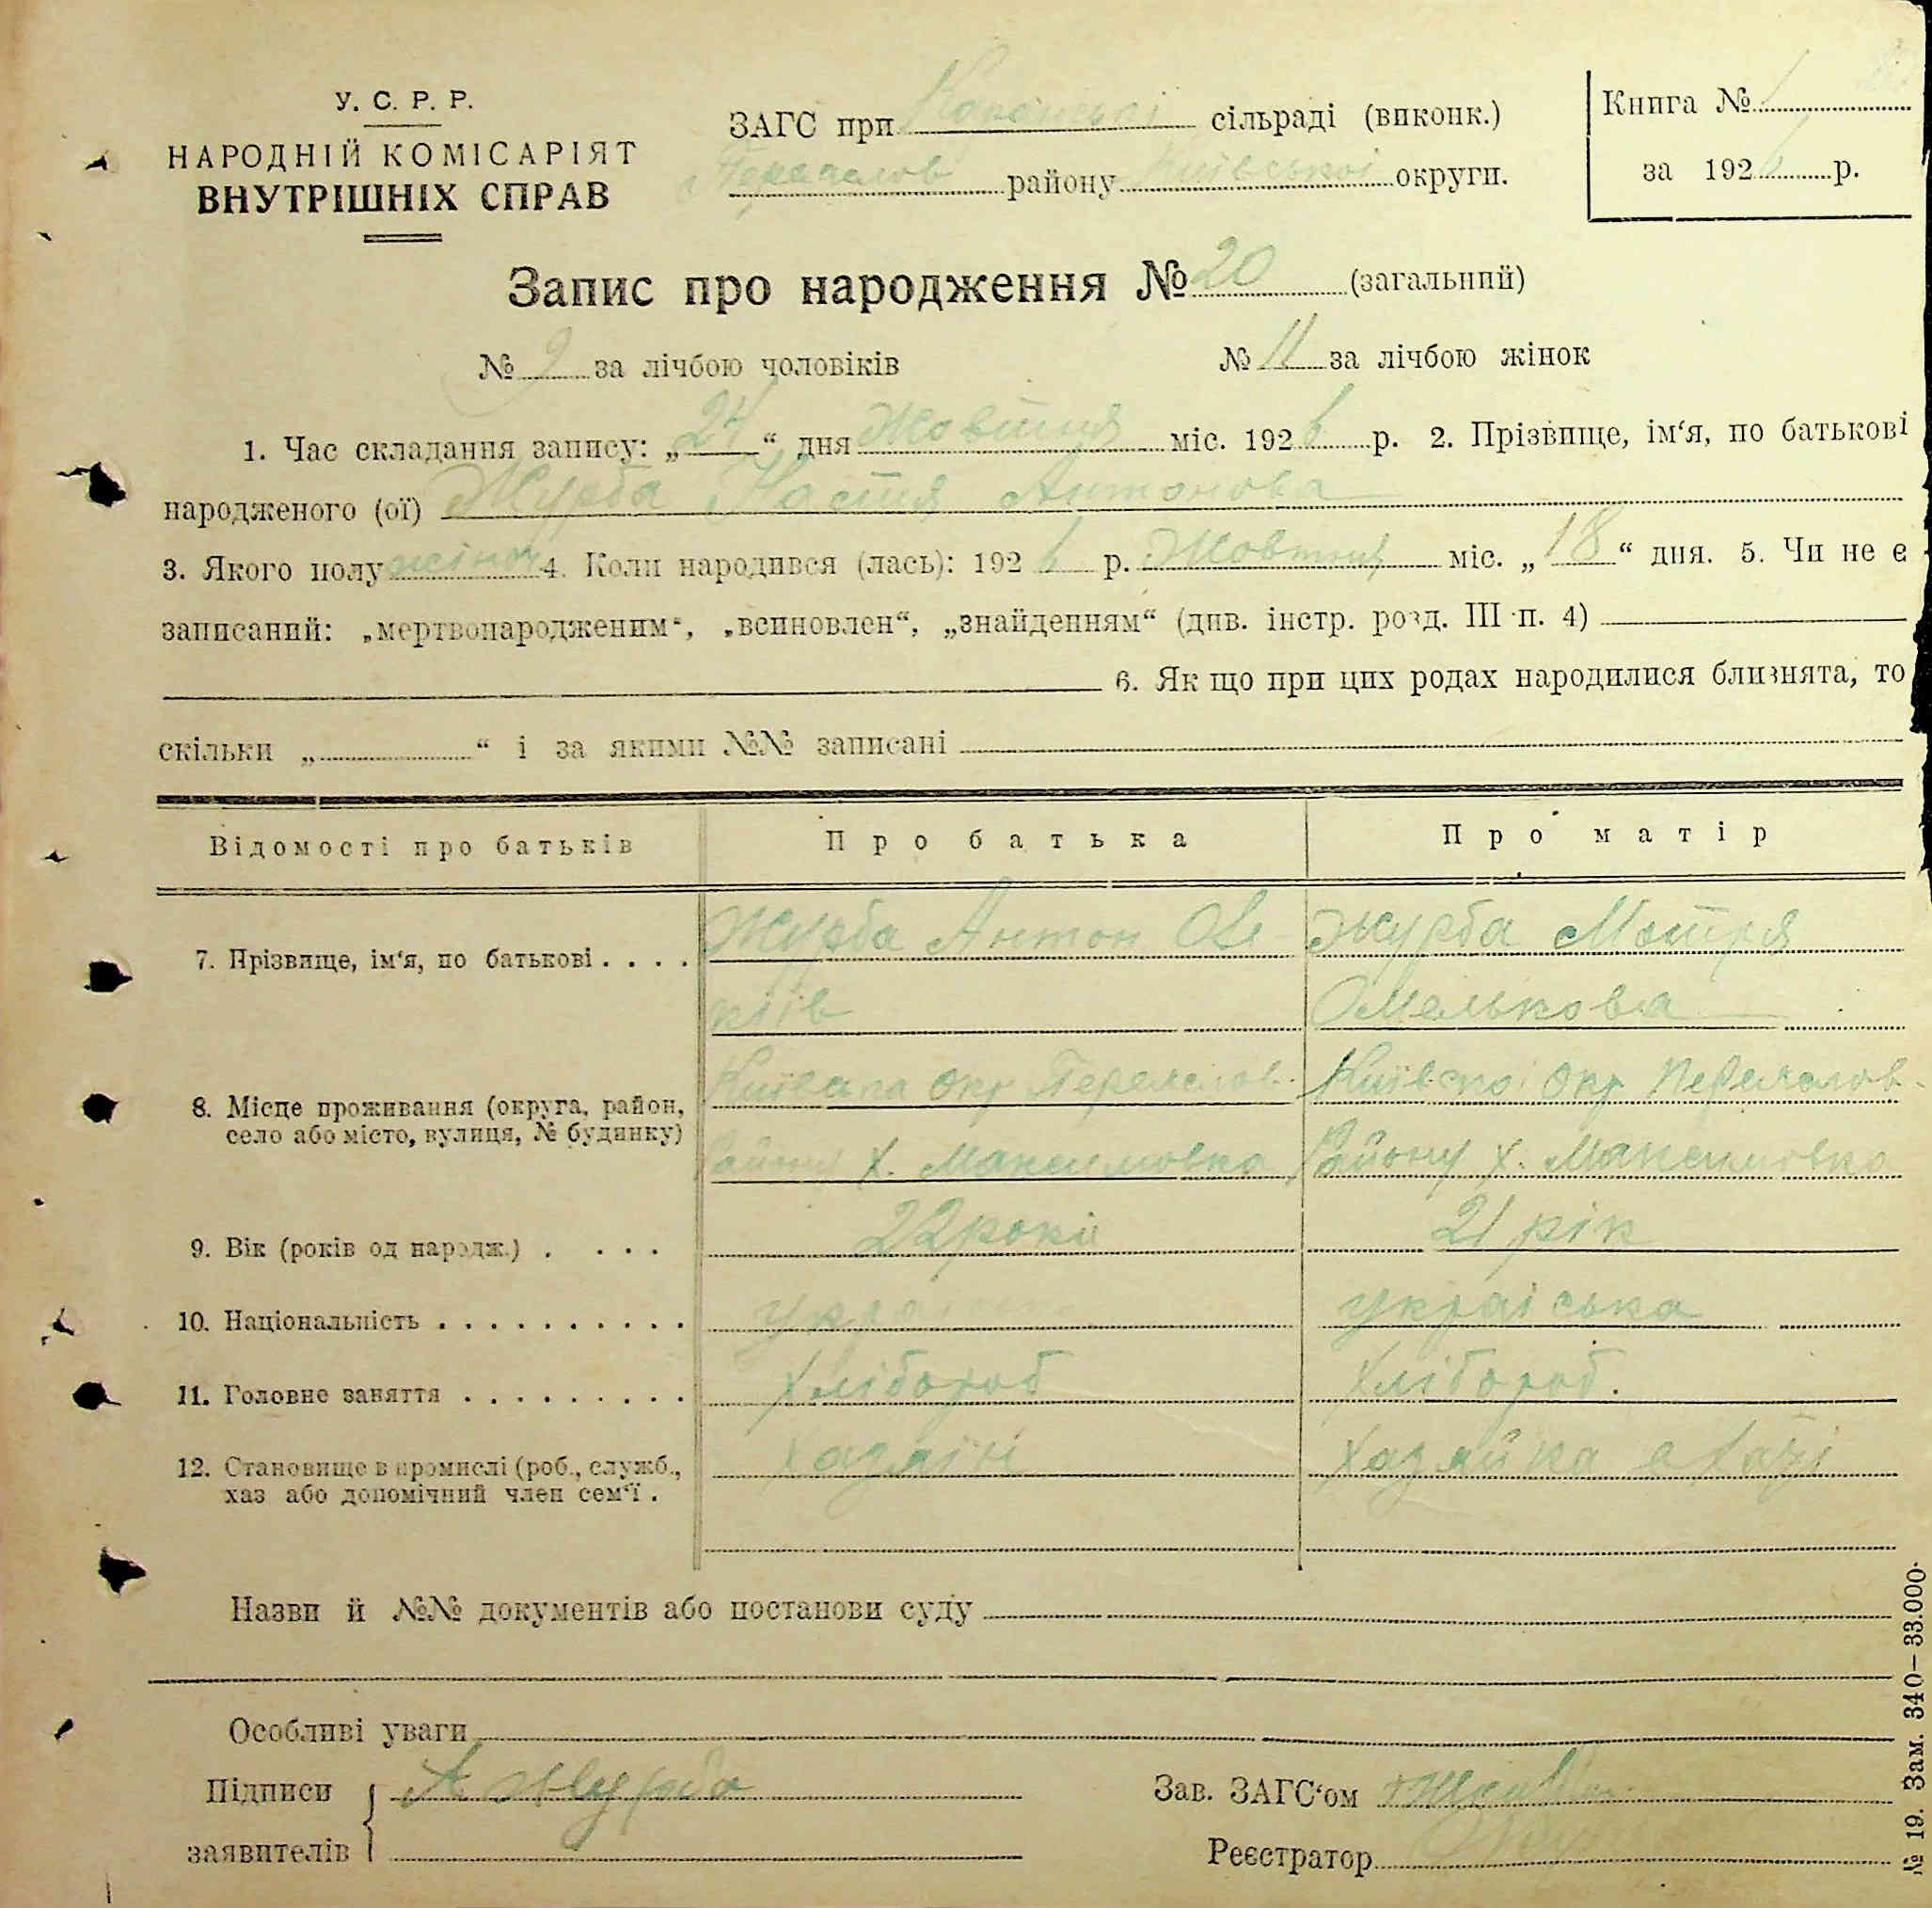 У. С. Р. Р.
НАРОДНІЙ КОМІСАРІЯТ
ВНУТРІШНІХ СПРАВ
ЗАГС при сільраді (виконк.)
Переяслов району Київської округи.
Книга №
за 192 р.
Запис про народження № 20 (загальний)
№ 9 за лічбою чоловіків № 11 за лічбою жінок
1. Час складання запису: „24“ дня Жовтня міс. 1926 р. 2. Прізвище, ім‘я, по батькові
народженого (ої) Журба Настя Антонова
3. Якого полу жіноч 4. Коли народився (лась): 1926 р. Жовтня міс. „18“ дня. 5. Чи не є
записаний: „мертвонародженим“, „всиновлен“, „знайденням“ (див. інстр. розд. III п. 4)
6. Як що при цих родах народилися близнята, то
скільки „ “ і за якими №№ записані
Відомості про батьків Про батька Про матір
7. Прізвище, ім‘я, по батькові . . . . Журба Антон Журба Мотря
Омелькова
8. Місце проживання (округа, район, Окр Переяслов Окр Переяслов
село або місто, вулиця, № будинку) Району Х. Максимовка Району Х. Максимовка
9. Вік (років од народж.) . . . . 22 роки 21 рік
10. Національність . . . . . . . . . . українська
11. Головне заняття . . . . . . . . . Хлібороб Хлібороб.
12. Становище в промислі (роб., служб., Хазяїн Хазяйка
хаз або допомічний член сем‘ї .
Назви й №№ документів або постанови суду
Особливі уваги
Підписи А Журба Зав. ЗАГС‘ом
заявителів Реєстратор
№ 19. Зам. 340–33.000.